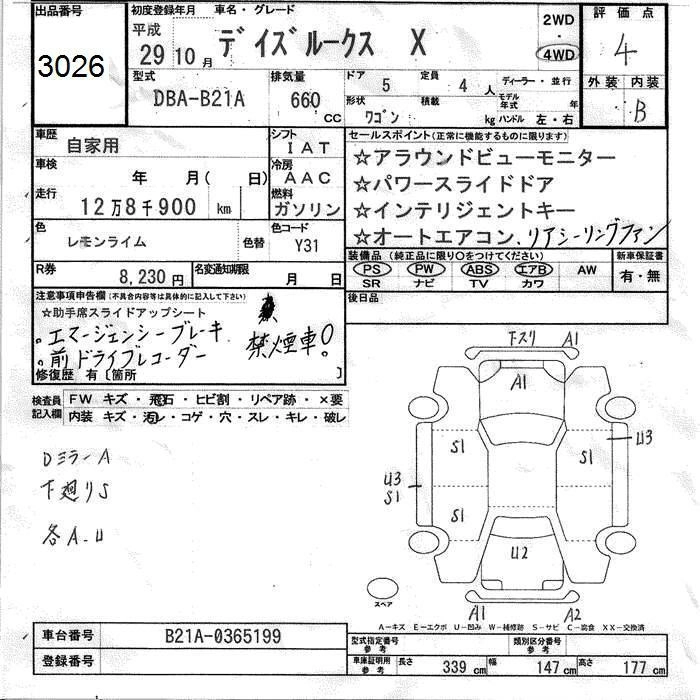 出品番号 初度登録年月 車名・グレード 2WD 評価点
3026 平成 29 10月 デイズルークス X 4WD 4
型式 排気量 ドア 5 定員 4人 ディーラー・並行 外装 内装
DBA-B21A 660 CC 形状 ワゴン 積載 kg モデル年式 年 ハンドル 左・右 B
車歴 自家用 シフト IAT セールスポイント(正常に機能するものに限ります)
車検 年 月( 日) 冷房 AAC ☆アラウンドビューモニター
走行 12万8千900 km 燃料 ガソリン ☆パワースライドドア
☆インテリジェントキー
色 レモンライム 色替 色コード Y31 ☆オートエアコン、リアシーリングファン
R券 8,230円 名変通知期限 月 日 装備品(純正品に限り○をつけてください) 新車保証書
PS PW ABS エアB AW 有・無
SR ナビ TV カワ
注意事項申告欄(不具合内容等は具体的に記入して下さい) 後日品
☆助手席スライドアップシート
。エマージェンシーブレーキ
。前ドライブレコーダー 禁煙車!
修復歴 有〔箇所 〕
検査員記入欄 FW キズ・飛石・ヒビ割・リペア跡・×要
内装 キズ・汚レ・コゲ・穴・スレ・キレ・破レ
下スリ A1
A1
DミラーA
下廻りS
各A.U
S1 S1 U3
U3 S1
S1
U2
スペア
A1 A2
A-キズ E-エクボ U-凹み W-補修跡 S-サビ C-腐食 XX-交換済
車台番号 B21A-0365199 型式指定番号 参考 類別区分番号 参考
登録番号 車庫証明用 参考 長さ 339cm 幅 147cm 高さ 177cm